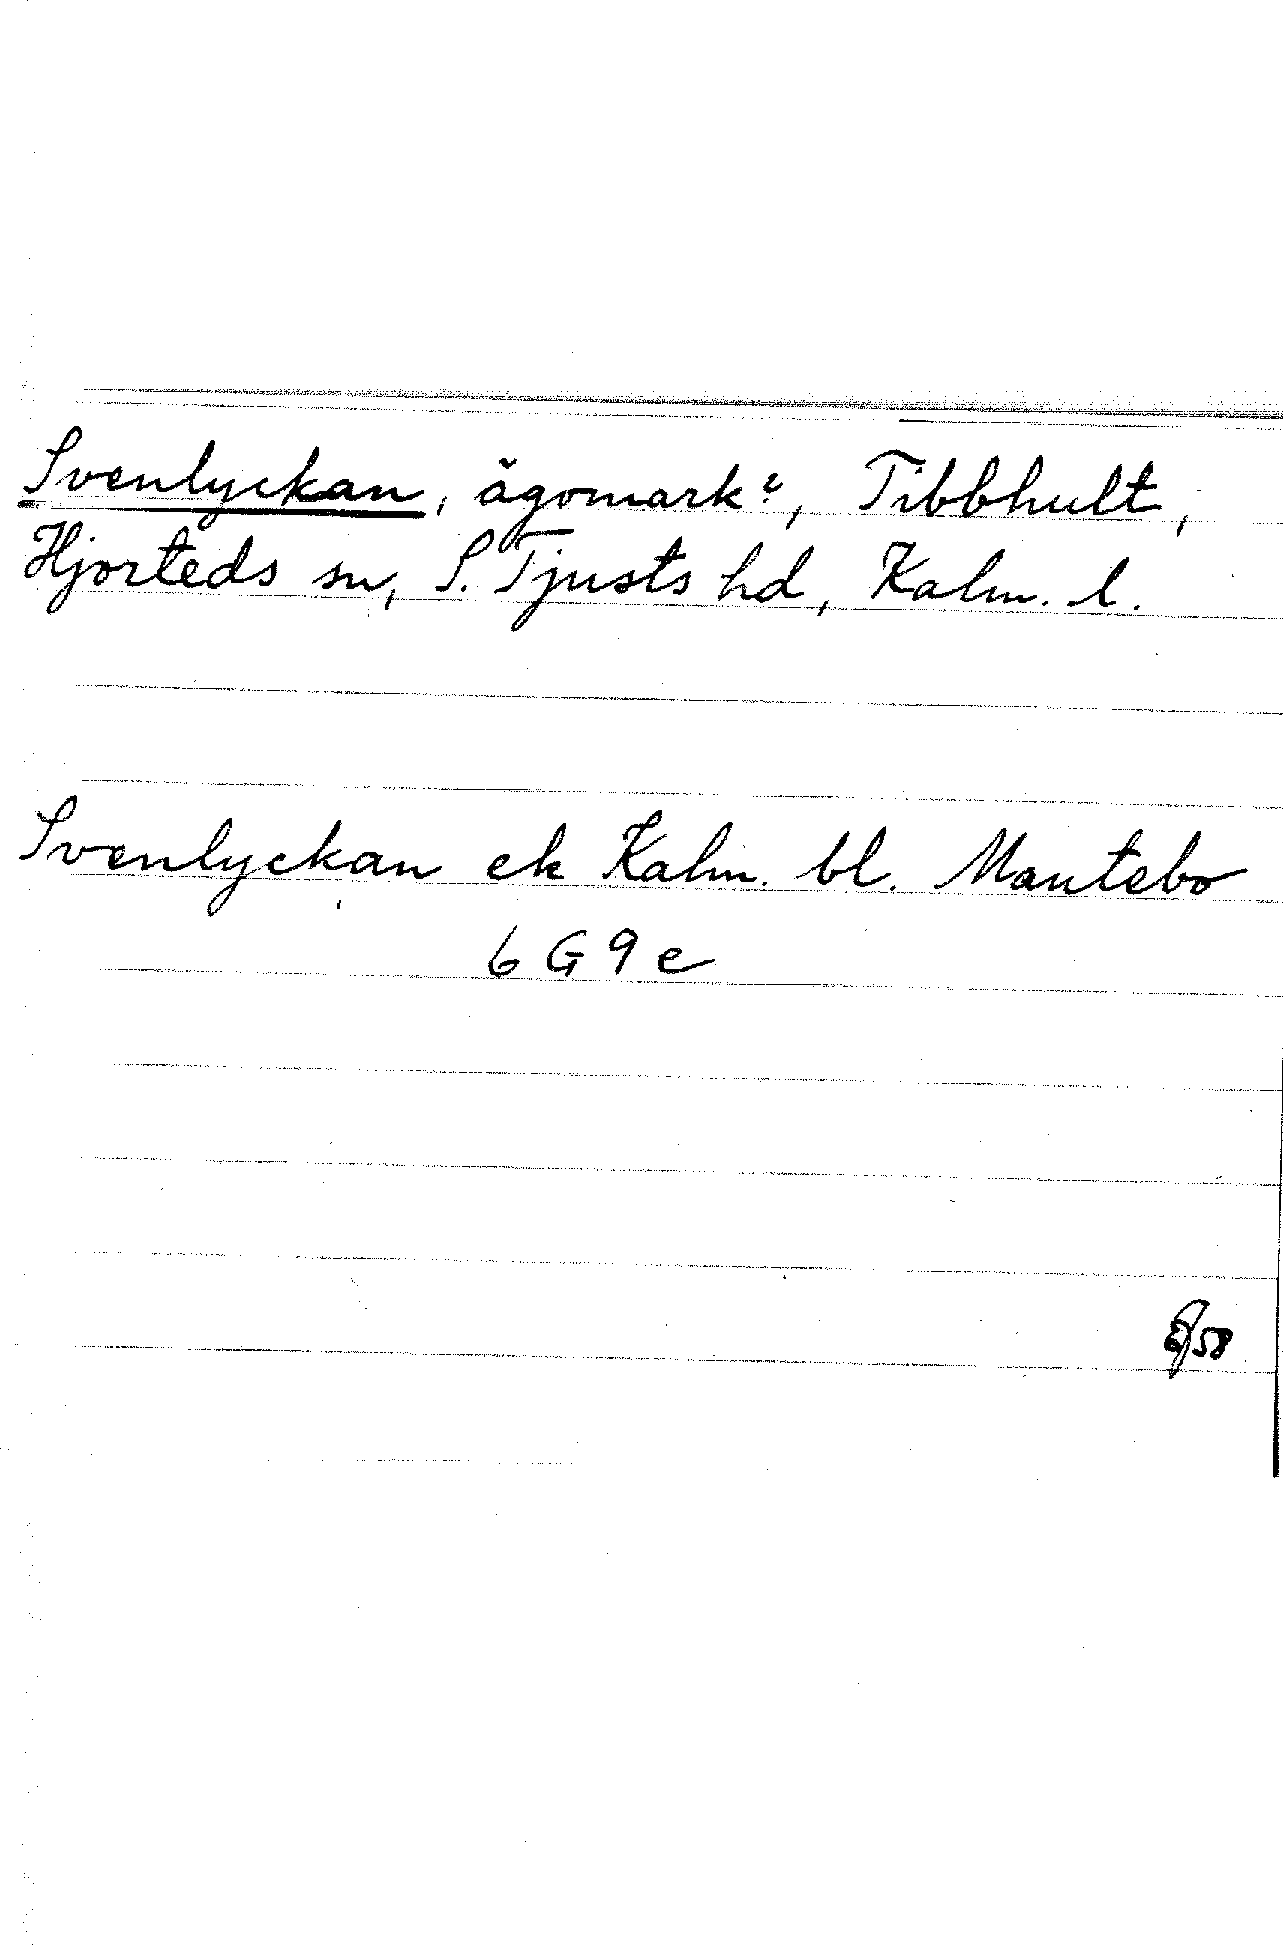 Svenlyckan, ägomark?, Tibbhult,
Hjorteds sn, S. Tjusts hd, Kalm. l.
Svenlyckan ek Kalm. bl. Mantebo
6 G 9 e